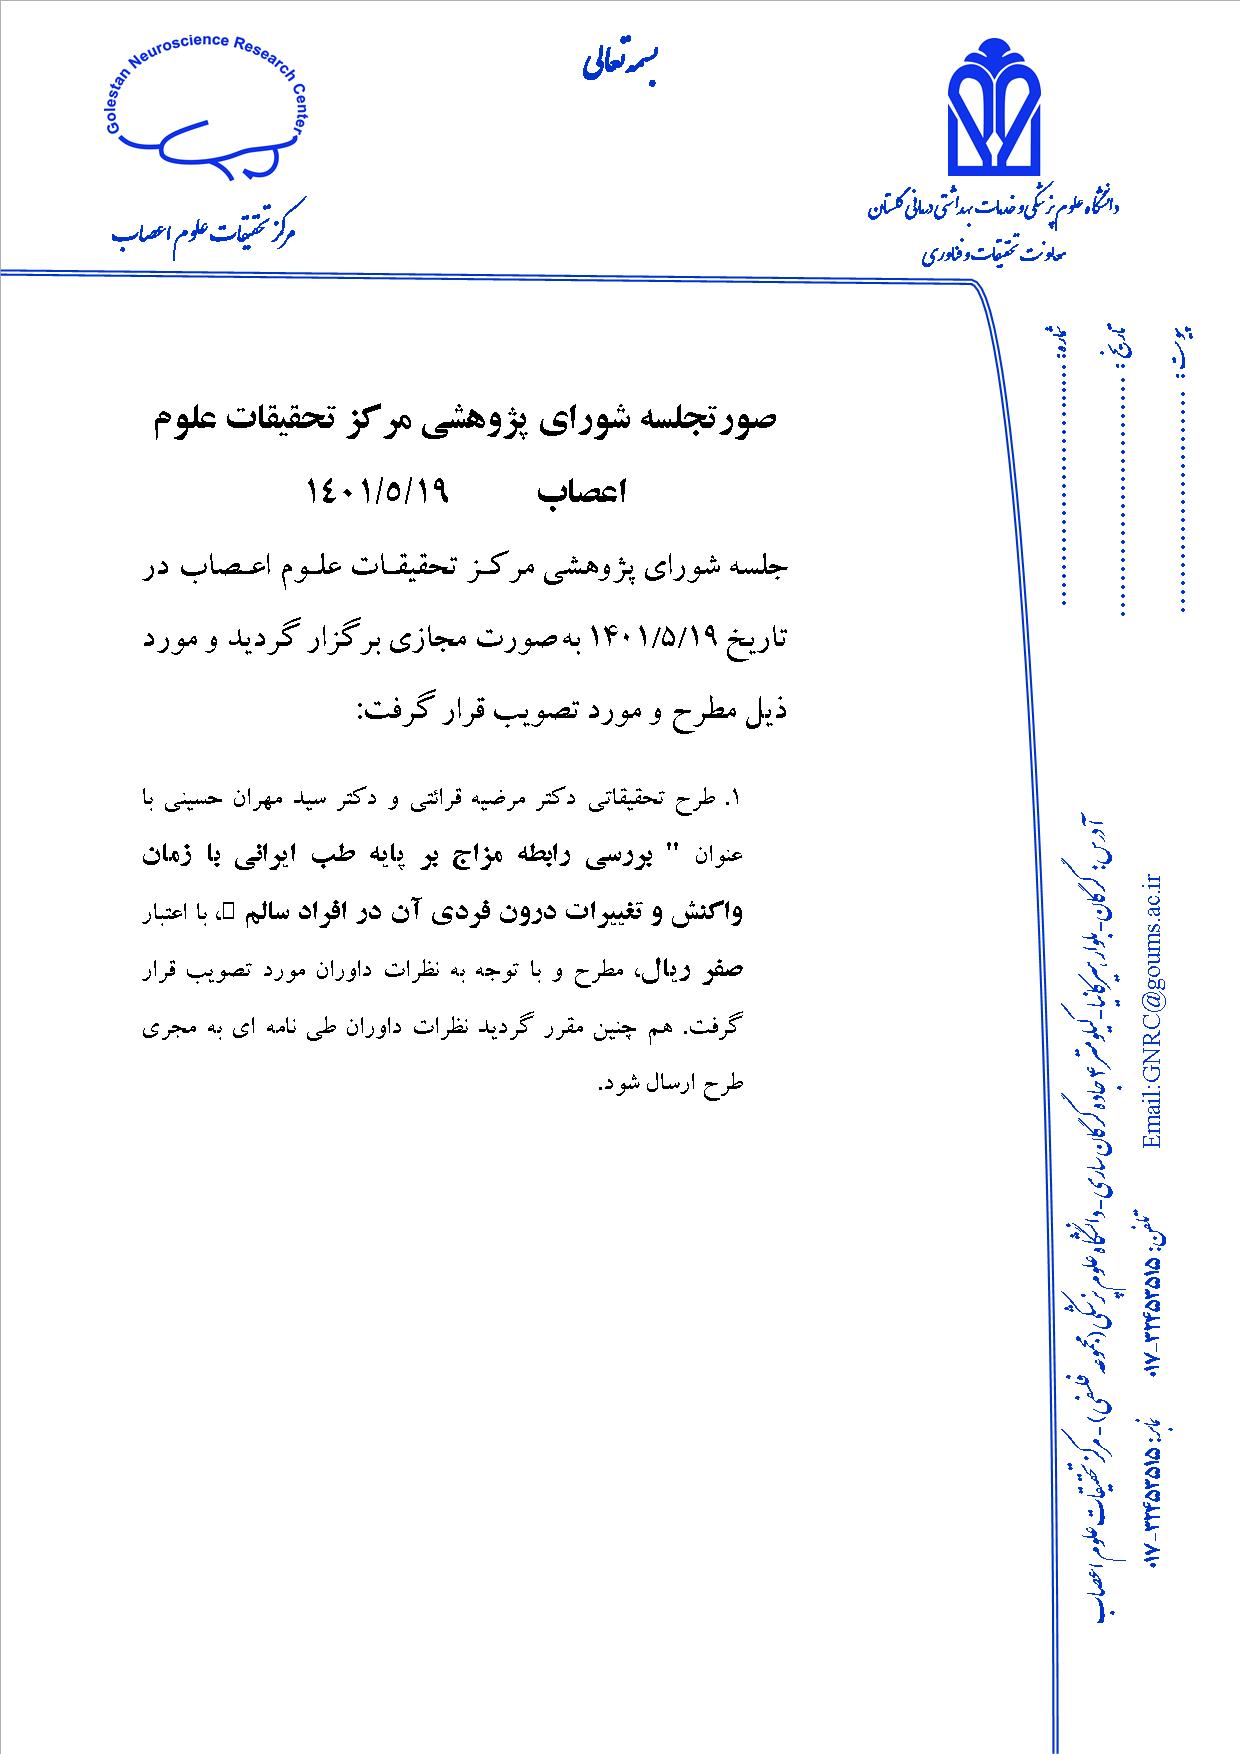 بسمه تعالی
Golestan Neuroscience Research Center
مرکز تحقیقات علوم اعصاب
دانشگاه علوم پزشکی و خدمات بهداشتی درمانی گلستان
معاونت تحقیقات و فناوری
شماره: ........................
تاریخ: ........................
پیوست: ........................
صورتجلسه شورای پژوهشی مرکز تحقیقات علوم
اعصاب ۱٤۰۱/٥/۱۹
جلسه شورای پژوهشی مرکز تحقیقات علوم اعصاب در
تاریخ ۱۴۰۱/۵/۱۹ به صورت مجازی برگزار گردید و مورد
ذیل مطرح و مورد تصویب قرار گرفت:
۱. طرح تحقیقاتی دکتر مرضیه قرائتی و دکتر سید مهران حسینی با
عنوان " بررسی رابطه مزاج بر پایه طب ایرانی با زمان
واکنش و تغییرات درون فردی آن در افراد سالم ▯، با اعتبار
صفر ریال، مطرح و با توجه به نظرات داوران مورد تصویب قرار
گرفت. هم چنین مقرر گردید نظرات داوران طی نامه ای به مجری
طرح ارسال شود.
آدرس: گرگان-بلوار هیرکانیا-کیلومتر ۴ جاده گرگان ساری-دانشگاه علوم پزشکی (مجموعه فلسفی)-مرکز تحقیقات علوم اعصاب
Email:GNRC@goums.ac.ir
تلفن: ۰۱۷-۳۲۴۵۳۵۱۵
نمابر: ۰۱۷-۳۲۴۵۳۵۱۵